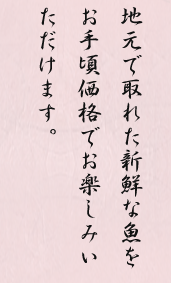 地元で取れた新鮮な魚を
お手頃価格でお楽しみい
ただけます。